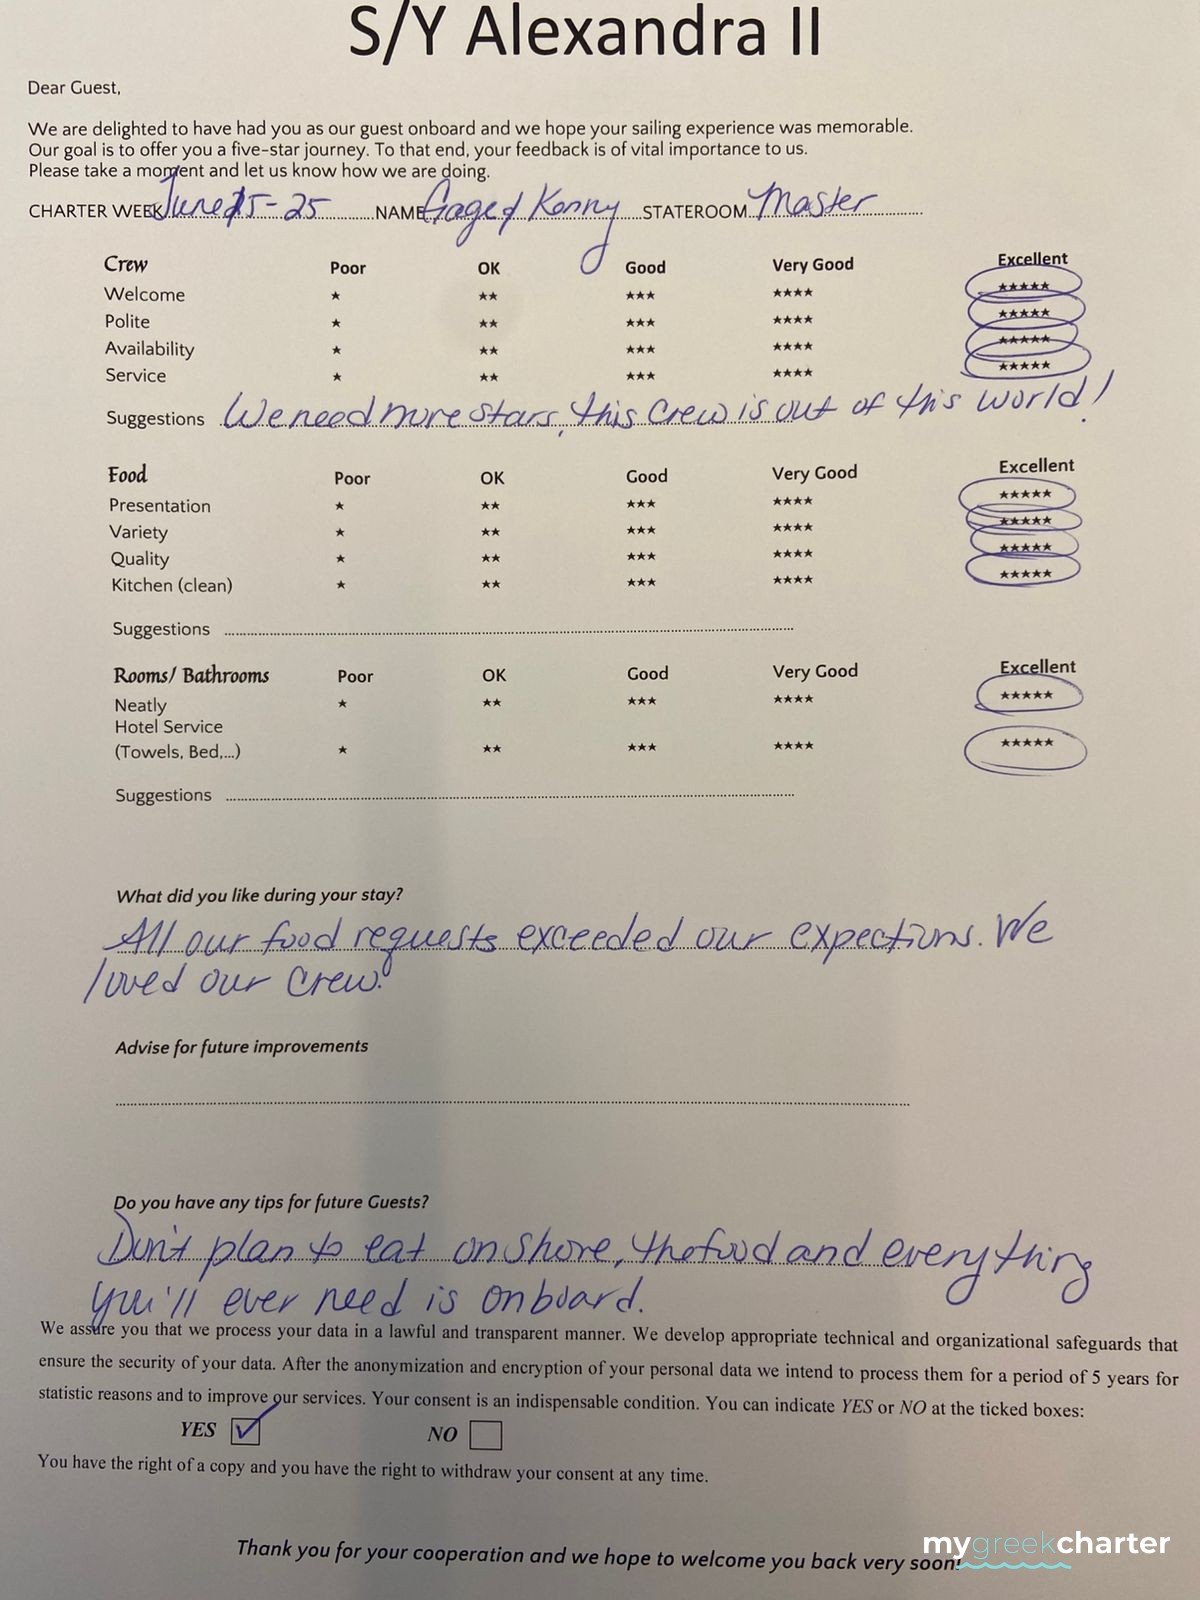 S/Y Alexandra II
Dear Guest,
We are delighted to have had you as our guest onboard and we hope your sailing experience was memorable.
Our goal is to offer you a five-star journey. To that end, your feedback is of vital importance to us.
Please take a moment and let us know how we are doing.
CHARTER WEEK June 15-25 NAME Gage & Konny STATEROOM Master
Crew Poor OK Good Very Good Excellent
Welcome ★ ★★ ★★★ ★★★★ ★★★★★
Polite ★ ★★ ★★★ ★★★★ ★★★★★
Availability ★ ★★ ★★★ ★★★★ ★★★★★
Service ★ ★★ ★★★ ★★★★ ★★★★★
Suggestions We need more stars, this crew is out of this world!
Food Poor OK Good Very Good Excellent
Presentation ★ ★★ ★★★ ★★★★ ★★★★★
Variety ★ ★★ ★★★ ★★★★ ★★★★★
Quality ★ ★★ ★★★ ★★★★ ★★★★★
Kitchen (clean) ★ ★★ ★★★ ★★★★ ★★★★★
Suggestions
Rooms/ Bathrooms Poor OK Good Very Good Excellent
Neatly ★ ★★ ★★★ ★★★★ ★★★★★
Hotel Service
(Towels, Bed,...) ★ ★★ ★★★ ★★★★ ★★★★★
Suggestions
What did you like during your stay?
All our food requests exceeded our expections. We
loved our crew.
Advise for future improvements
Do you have any tips for future Guests?
Don't plan to eat on shore, the food and everything
you'll ever need is onboard.
We assure you that we process your data in a lawful and transparent manner. We develop appropriate technical and organizational safeguards that
ensure the security of your data. After the anonymization and encryption of your personal data we intend to process them for a period of 5 years for
statistic reasons and to improve our services. Your consent is an indispensable condition. You can indicate YES or NO at the ticked boxes:
YES ✓ NO
You have the right of a copy and you have the right to withdraw your consent at any time.
Thank you for your cooperation and we hope to welcome you back very soon!
mygreekcharter